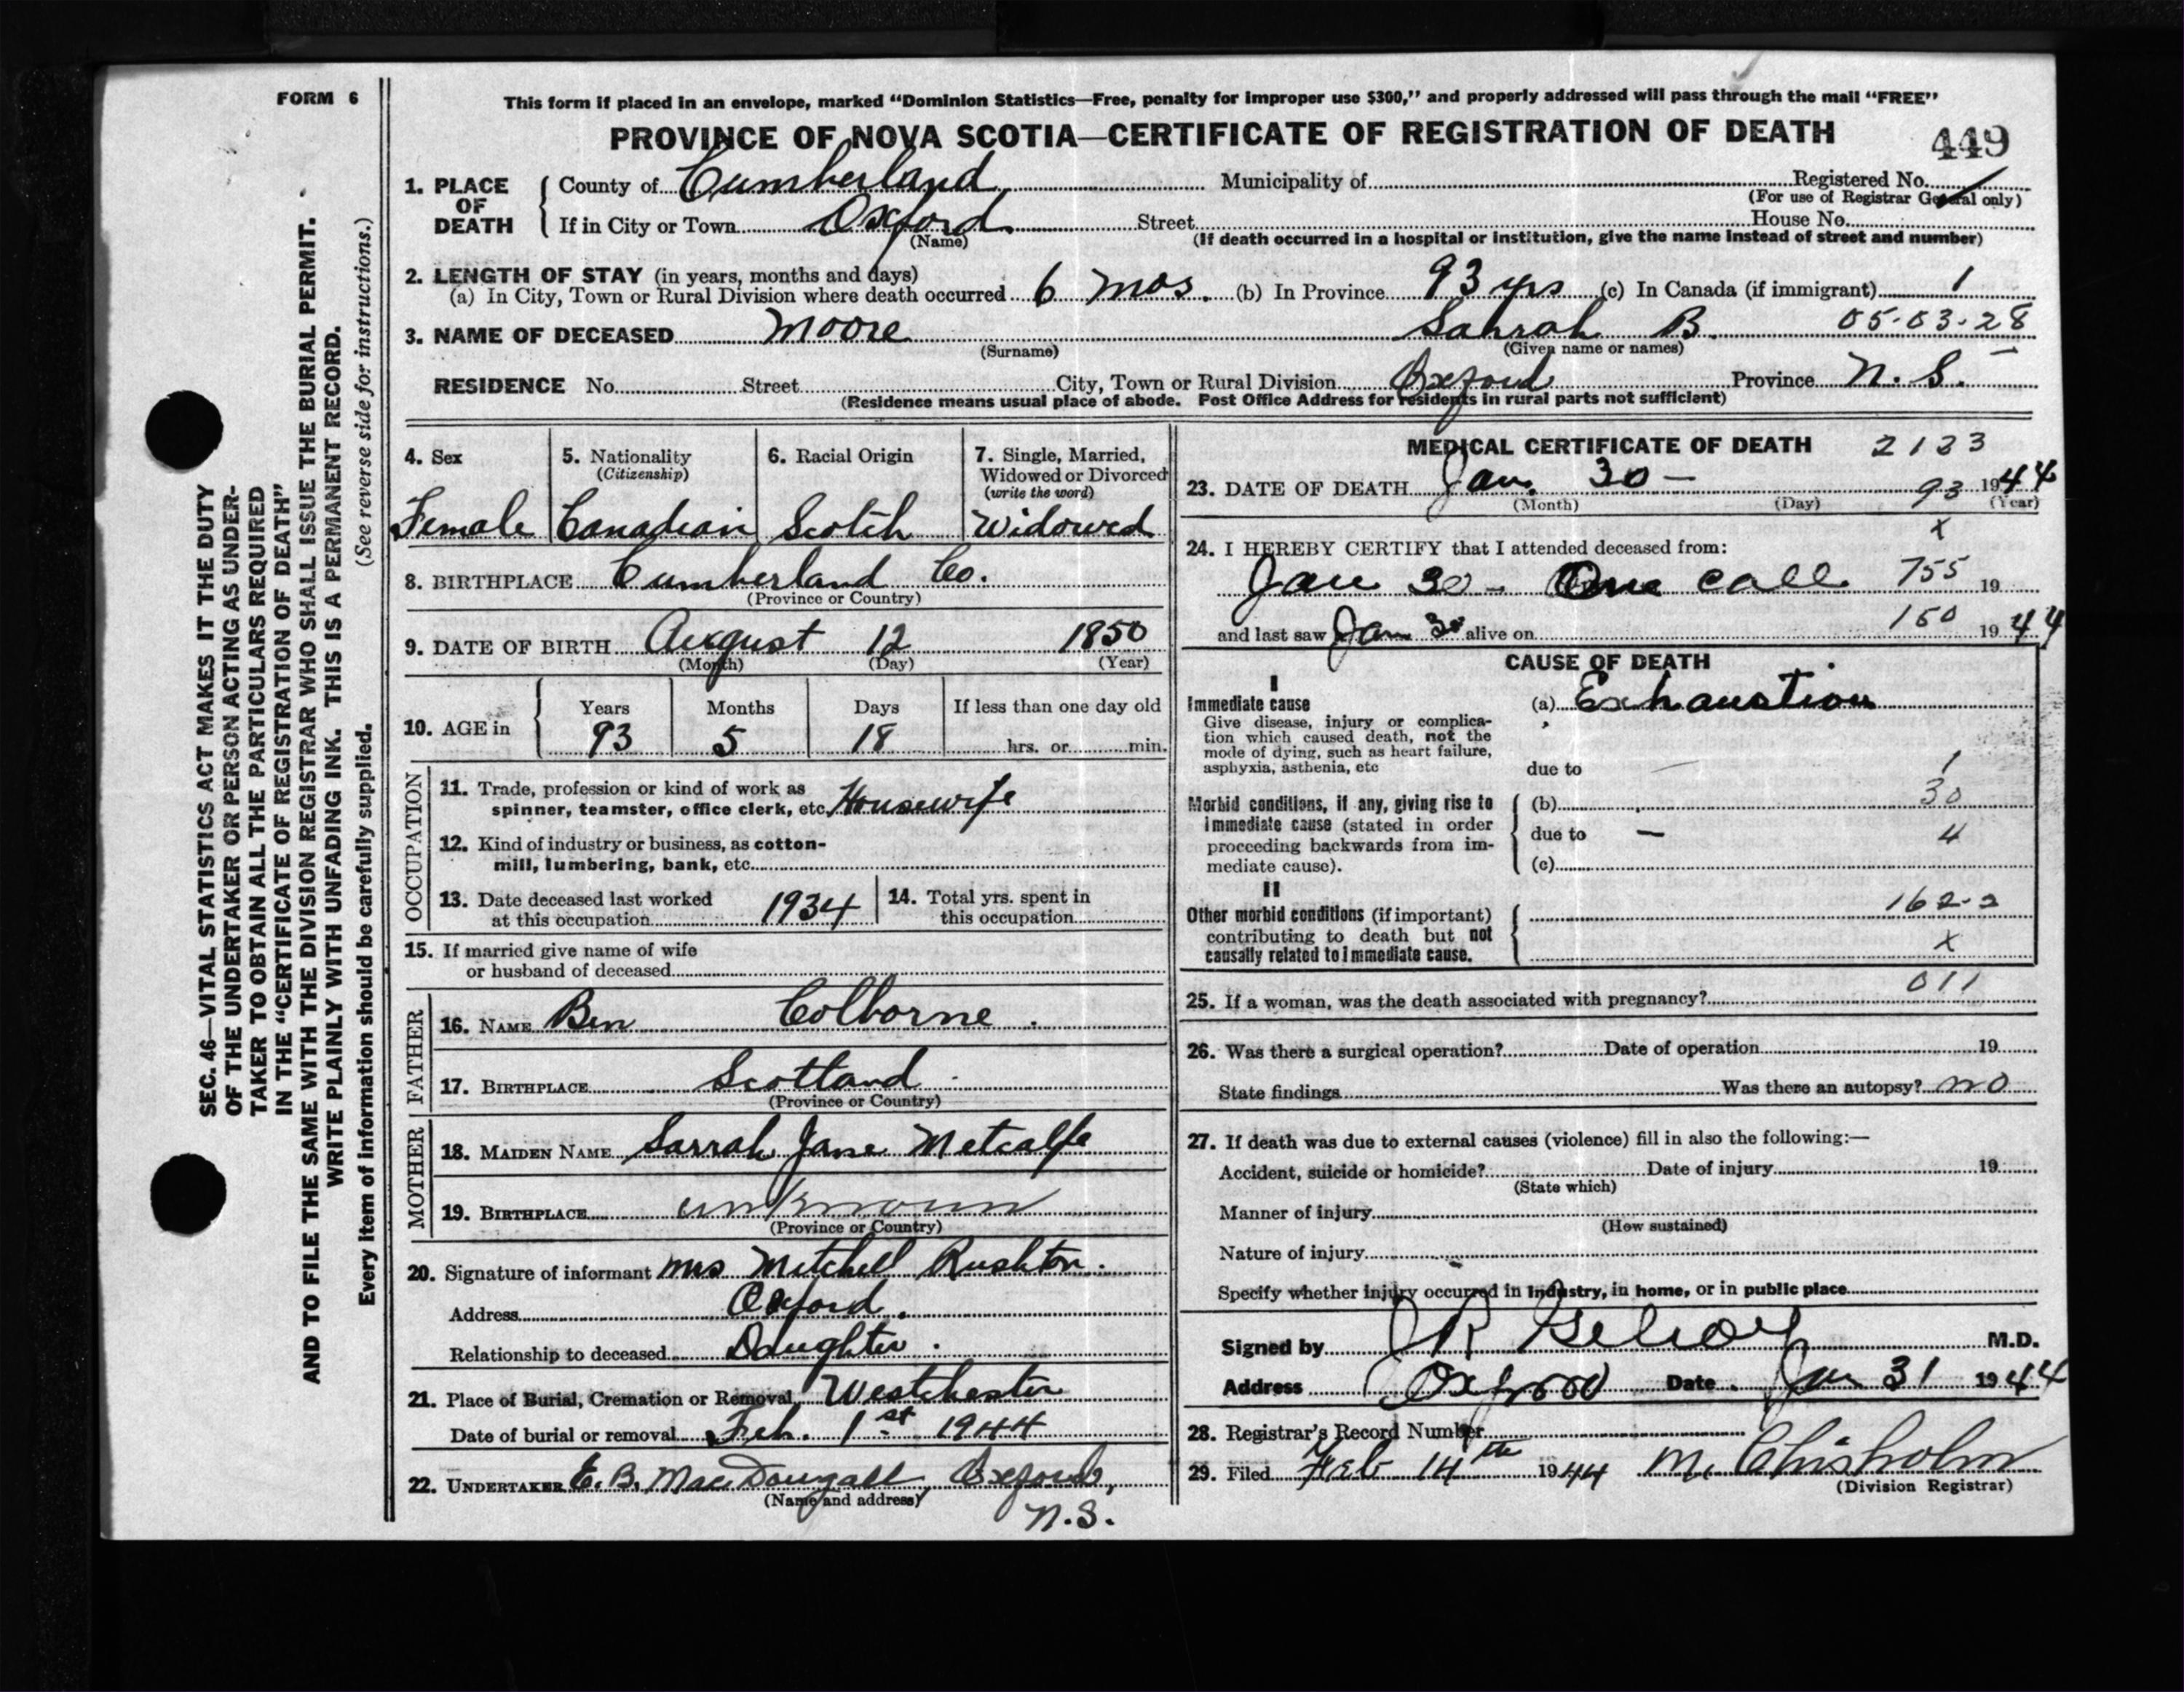 FORM 6
This form if placed in an envelope, marked "Dominion Statistics—Free, penalty for improper use $300," and properly addressed will pass through the mail "FREE"
PROVINCE OF NOVA SCOTIA—CERTIFICATE OF REGISTRATION OF DEATH 449
SEC. 46—VITAL STATISTICS ACT MAKES IT THE DUTY
OF THE UNDERTAKER OR PERSON ACTING AS UNDER-
TAKER TO OBTAIN ALL THE PARTICULARS REQUIRED
IN THE "CERTIFICATE OF REGISTRATION OF DEATH"
AND TO FILE THE SAME WITH THE DIVISION REGISTRAR WHO SHALL ISSUE THE BURIAL PERMIT.
WRITE PLAINLY WITH UNFADING INK. THIS IS A PERMANENT RECORD.
Every item of information should be carefully supplied. (See reverse side for instructions.)
1. PLACE OF DEATH
County of Cumberland Municipality of Registered No.
(For use of Registrar General only)
If in City or Town Oxford Street House No.
(Name) (If death occurred in a hospital or institution, give the name instead of street and number)
2. LENGTH OF STAY (in years, months and days)
(a) In City, Town or Rural Division where death occurred 6 mos. (b) In Province 93 yrs (c) In Canada (if immigrant) 1
3. NAME OF DECEASED Moore Sahrah B. 05-03-28
(Surname) (Given name or names)
RESIDENCE No. Street City, Town or Rural Division Oxford Province N. S.
(Residence means usual place of abode. Post Office Address for residents in rural parts not sufficient)
4. Sex
Female
5. Nationality
(Citizenship)
Canadian
6. Racial Origin
Scotch
7. Single, Married,
Widowed or Divorced
(write the word)
Widowed
8. BIRTHPLACE Cumberland Co.
(Province or Country)
9. DATE OF BIRTH August 12 1850
(Month) (Day) (Year)
10. AGE in Years Months Days If less than one day old
93 5 18 hrs. or min.
OCCUPATION
11. Trade, profession or kind of work as
spinner, teamster, office clerk, etc. Housewife
12. Kind of industry or business, as cotton-
mill, lumbering, bank, etc.
13. Date deceased last worked
at this occupation 1934
14. Total yrs. spent in
this occupation
15. If married give name of wife
or husband of deceased
FATHER
16. NAME Ben Colborne
17. BIRTHPLACE Scotland
(Province or Country)
MOTHER
18. MAIDEN NAME Sarrah Jane Metcalfe
19. BIRTHPLACE unknown
(Province or Country)
20. Signature of informant Mrs Mitchell Rushton.
Address Oxford.
Relationship to deceased Daughter.
21. Place of Burial, Cremation or Removal Westchester
Date of burial or removal Feb. 1st 1944
22. UNDERTAKER E. B. MacDougall, Oxford,
(Name and address)
N.S.
MEDICAL CERTIFICATE OF DEATH 2133
23. DATE OF DEATH Jan. 30 - 93 1944
(Month) (Day) (Year)
x
24. I HEREBY CERTIFY that I attended deceased from:
Jan 30 - One call 755 19
and last saw Jan 30 alive on 150 1944
CAUSE OF DEATH
I
Immediate cause
Give disease, injury or complica-
tion which caused death, not the
mode of dying, such as heart failure,
asphyxia, asthenia, etc
(a) Exhaustion
due to — 1
Morbid conditions, if any, giving rise to
immediate cause (stated in order
proceeding backwards from im-
mediate cause).
(b) 30
due to — 4
(c)
II
Other morbid conditions (if important)
contributing to death but not
causally related to immediate cause.
162-2
x
25. If a woman, was the death associated with pregnancy? 011
26. Was there a surgical operation? Date of operation 19
State findings Was there an autopsy? no
27. If death was due to external causes (violence) fill in also the following:—
Accident, suicide or homicide? Date of injury 19
(State which)
Manner of injury
(How sustained)
Nature of injury
Specify whether injury occurred in Industry, in home, or in public place
Signed by M.D.
Address Oxford Date Jan 31 1944
28. Registrar's Record Number
29. Filed Feb 14th 1944 M. Chisholm
(Division Registrar)